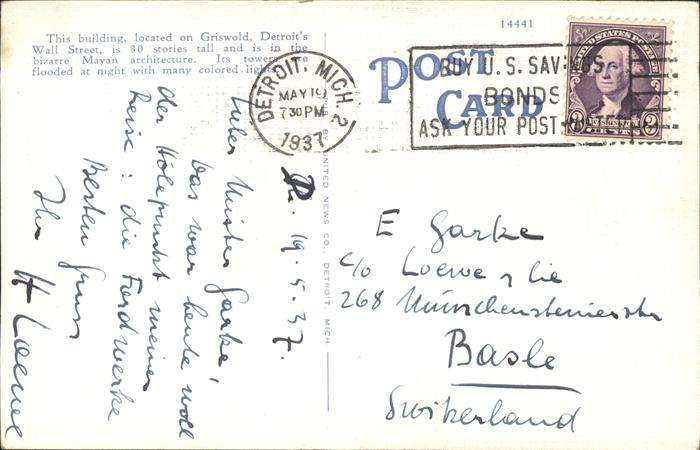 This building, located on Griswold, Detroit's
Wall Street, is 30 stories tall and is in the
bizarre Mayan architecture. Its towers are
flooded at night with many colored lights
14441
POST
CARD
DETROIT, MICH. 2
MAY 19
7 30 PM
1937
BUY U.S. SAVINGS
BONDS
ASK YOUR POST
UNITED STATES POSTAGE
WASHINGTON
3 CENTS 3
BY UNITED NEWS CO., DETROIT, MICH.
19.5.37.
Lieber Mister Garke!
Das war heute wohl
der Höhepunkt meiner
Reise: die Fordwerke
Besten Gruss
Ihr
H Loewe
E Garke
c/o Loewe & Cie
268 Münchensteinerstr
Basle
Switzerland